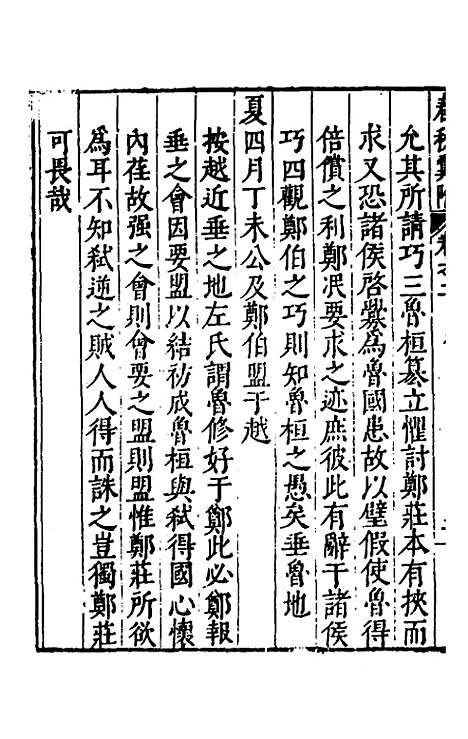 允其所請巧三魯桓篡立懼討鄭莊本有挾而
求又恐諸侯啓釁為魯國患故以璧假使魯得
倍償之利鄭泯要求之迹庶彼此有辭于諸侯
巧四觀鄭伯之巧則知魯桓之愚矣垂魯地
夏四月丁未公及鄭伯盟于越
按越近垂之地左氏謂魯修好于鄭此必鄭報
垂之會因要盟以結祊成魯桓與弒得國心懷
內荏故强之會則會要之盟則盟惟鄭莊所欲
為耳不知弒逆之賊人人得而誅之豈獨鄭莊
可畏哉